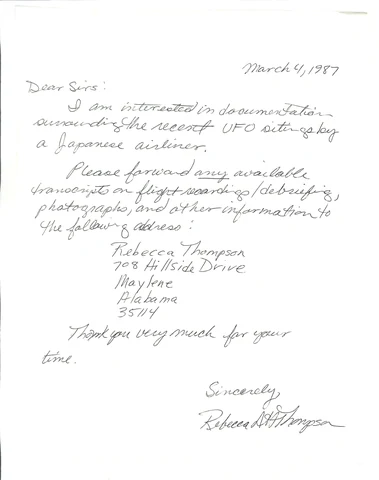 March 4, 1987
Dear Sirs:
I am interested in documentation
surrounding the recent UFO sitings by
a Japanese airliner.
Please forward any available
transcripts on flight recordings/debriefing,
photographs, and other information to
the following address:
Rebecca Thompson
708 Hillside Drive
Maylene
Alabama
35114
Thank you very much for your
time.
Sincerely,
Rebecca Thompson